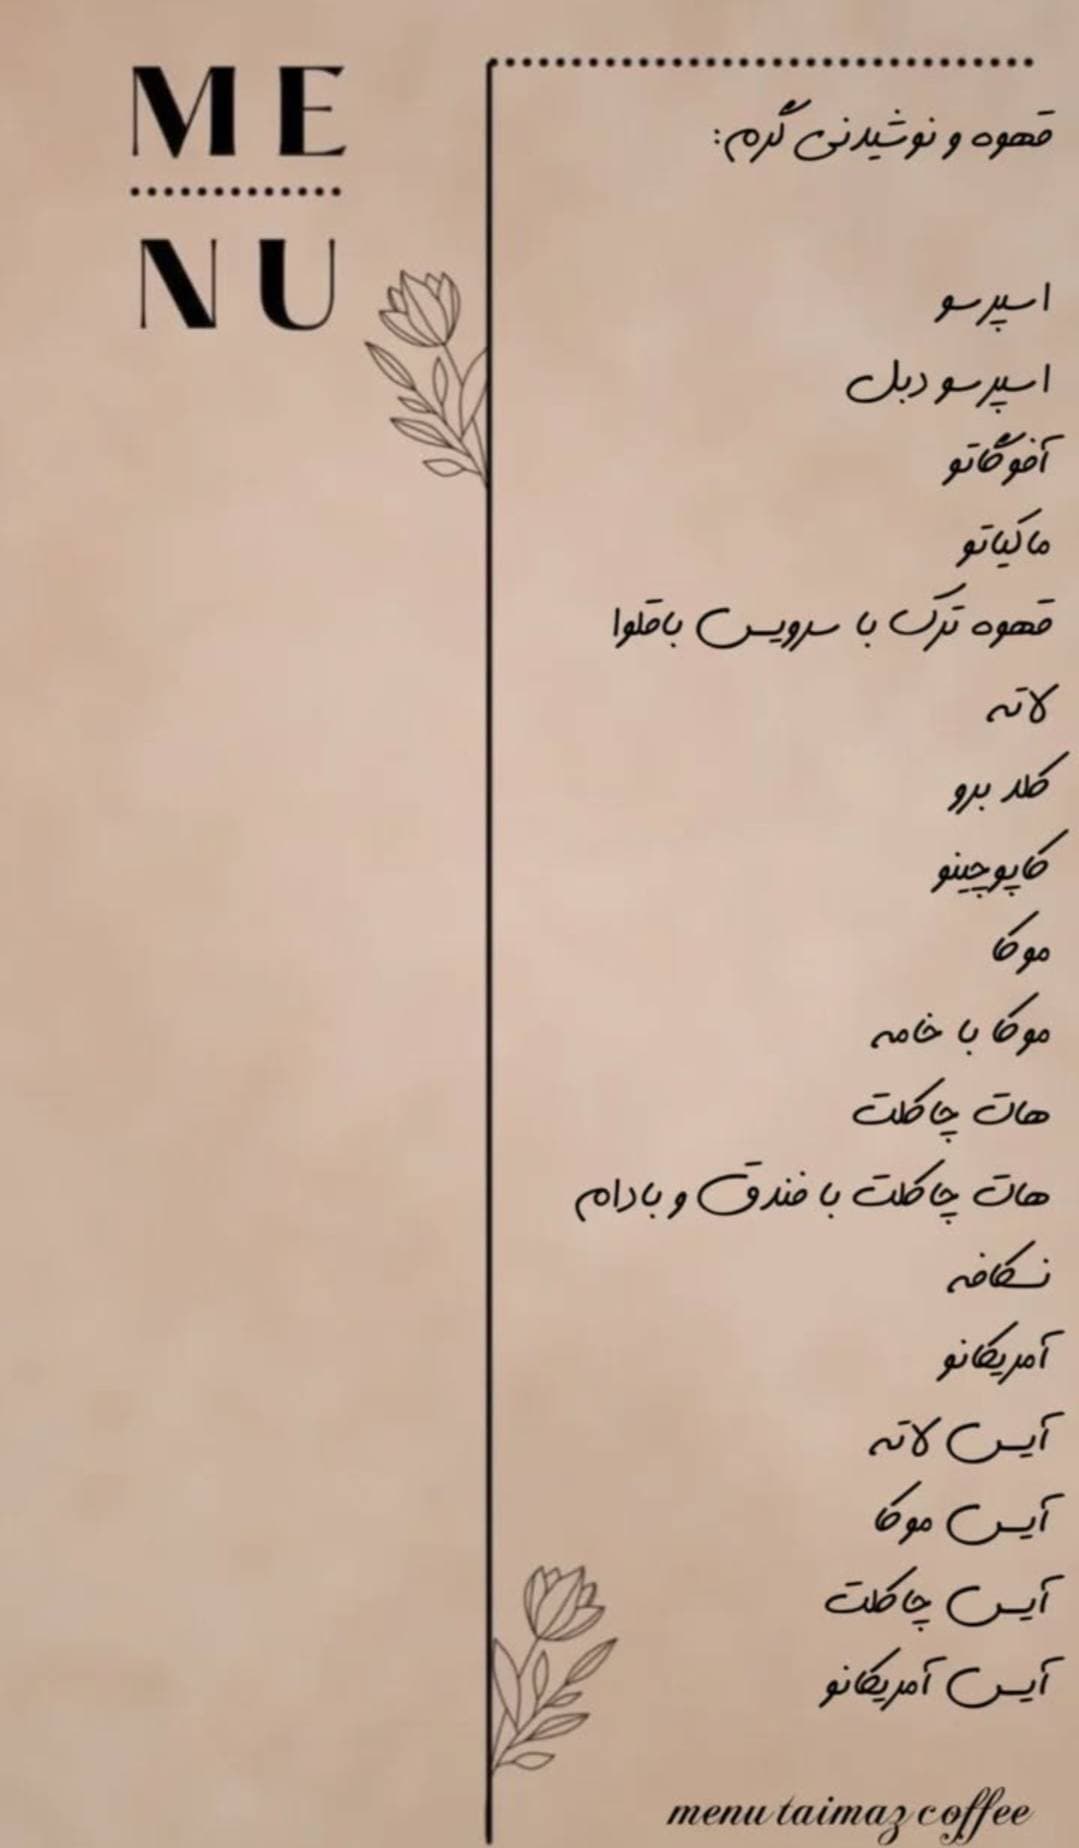 ME
NU
قهوه و نوشیدنی گرم:
اسپرسو
اسپرسو دبل
آفوگاتو
ماکیاتو
قهوه ترک با سرویس باقلوا
لاته
کلد برو
کاپوچینو
موکا
موکا با خامه
هات چاکلت
هات چاکلت با فندق و بادام
نسکافه
آمریکانو
آیس لاته
آیس موکا
آیس چاکلت
آیس آمریکانو
menu taimaz coffee